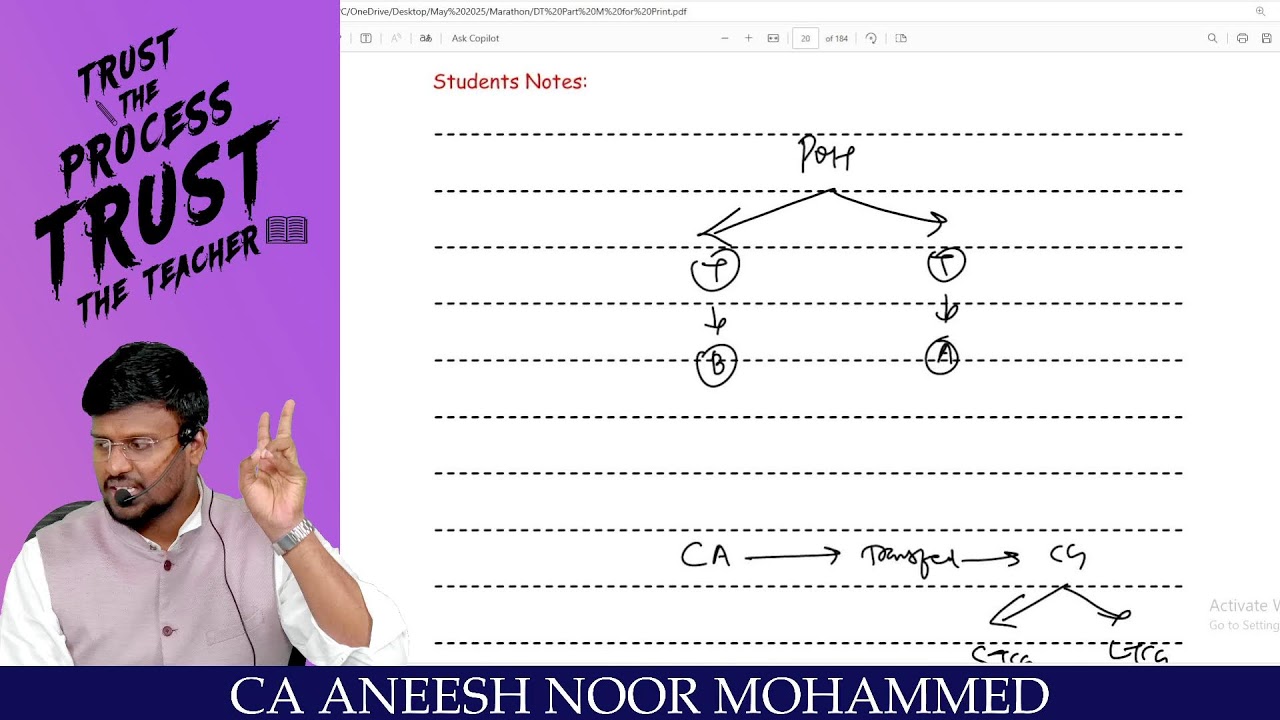 TRUST
THE
PROCESS
TRUST
THE TEACHER
C/OneDrive/Desktop/May%202025/Marathon/DT%20Part%20M%20for%20Print.pdf
Ask Copilot
20 of 184
Students Notes:
POH
T
B
A
CA CG
STCG LTCG
Activate W
Go to Setting
CA ANEESH NOOR MOHAMMED